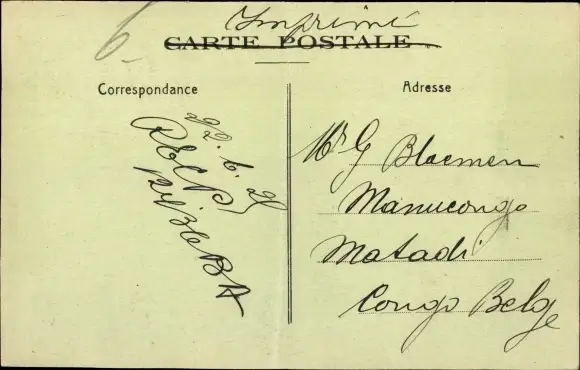 Imprimé
6
CARTE POSTALE
Correspondance
Adresse
22. 6. 21
Mr G Blaemen
Manucongo
Matadi
Congo Belge